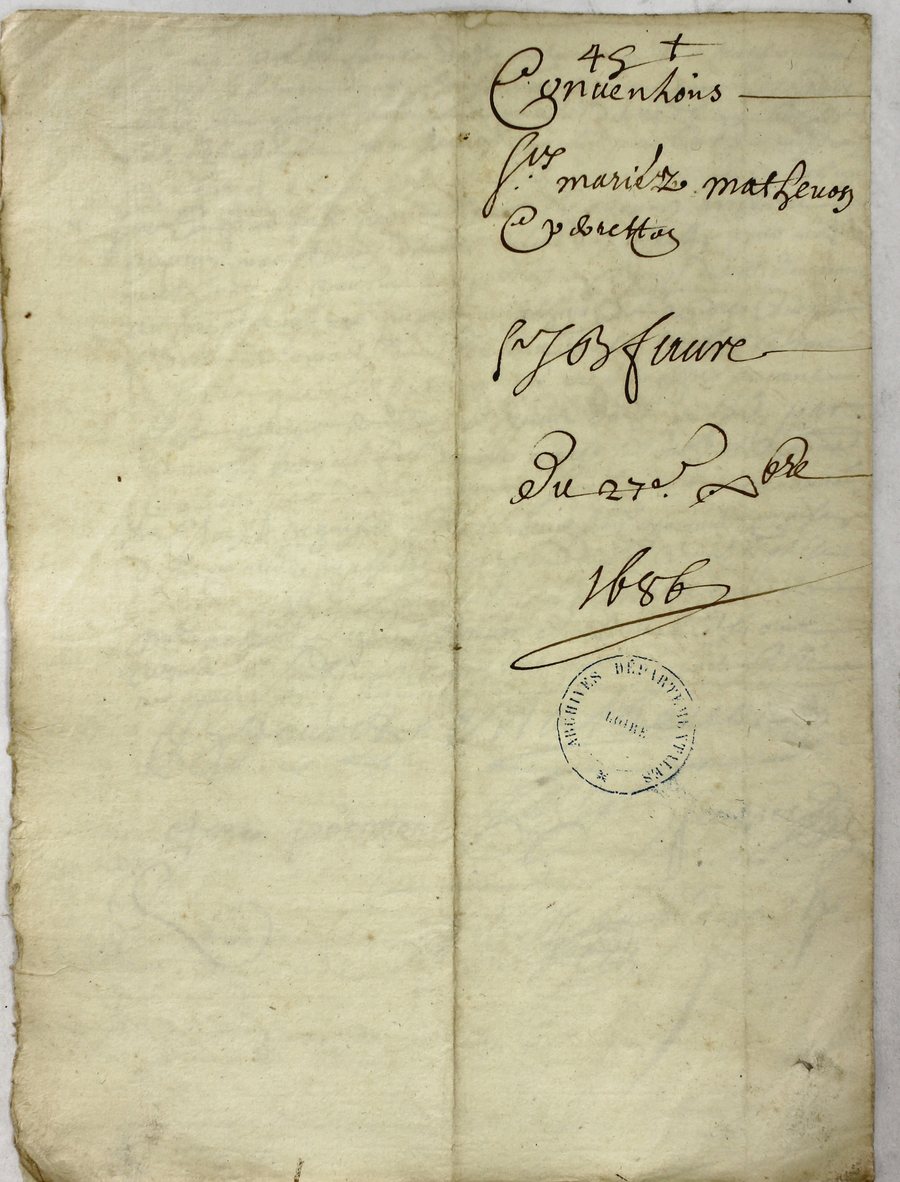 45 +
Conuentions
Srs mariéz matheuon
Sr JB faure
Du 27e. xbre
1686
ARCHIVES DÉPARTEMENTALES
LOIRE